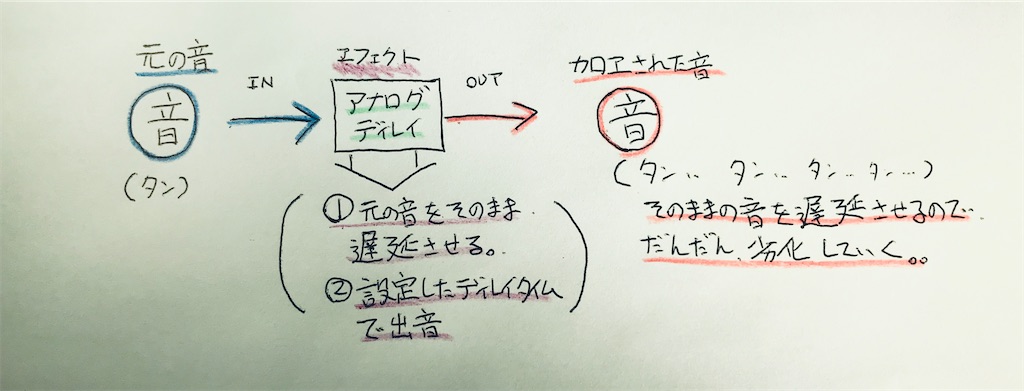 元の音
音
(タン)
IN
エフェクト
アナログ
ディレイ
① 元の音をそのまま
遅延させる。
② 設定したディレイタイム
で出音
OUT
加工された音
音
(タン‥ タン‥ タン‥タン…)
そのままの音を遅延させるので
だんだん、劣化していく。。